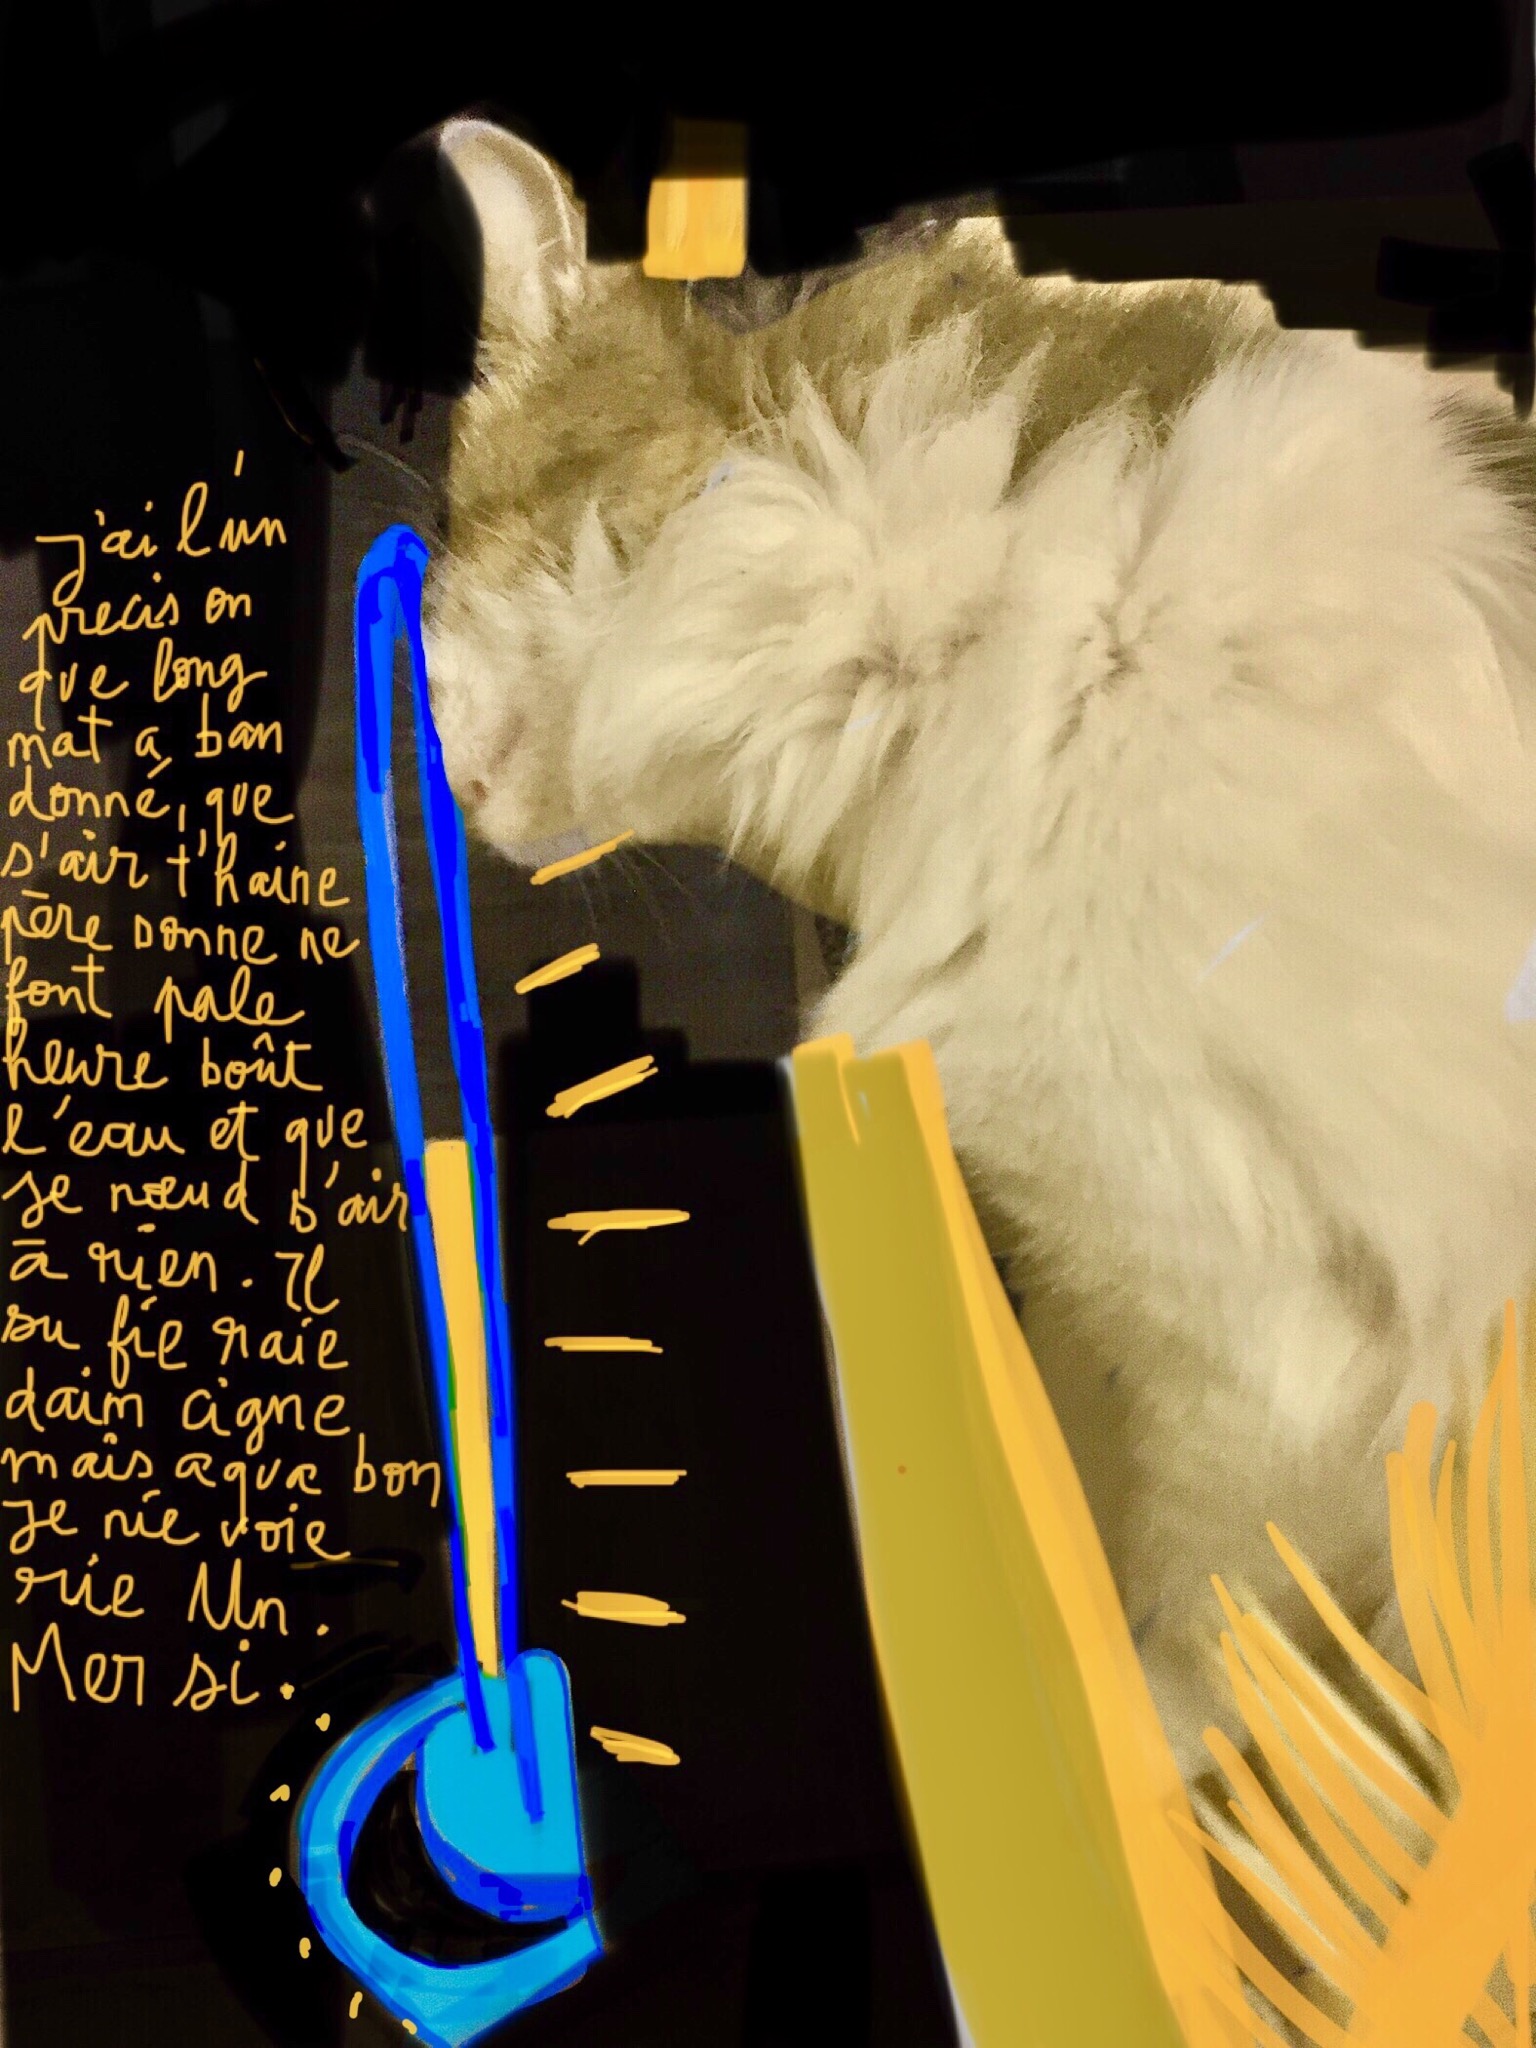 j'ai l'un
precis on
que long
mat a ban
donné, que
s'air t'haine
père sonne ne
font pale
heure boût
l'eau et que
je nœud s'air
à rien. Il
su fie raie
daim cigne
mais aqua bon
Je nie voie
rie Un.
Mer si.